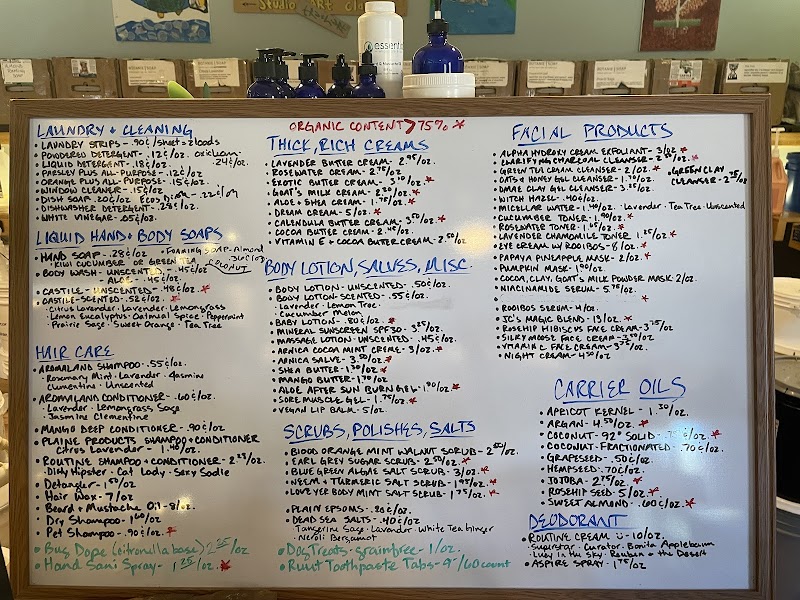 Studio Art Cla
essenti
LAUNDRY + CLEANING
• LAUNDRY STRIPS - .90¢/sheet=2 loads
• POWDERED DETERGENT - .12¢/oz. oxiclean
• LIQUID DETERGENT - .18¢/oz. .24¢/oz.
• PARSLEY PLUS ALL-PURPOSE - .12¢/oz
• ORANGE PLUS ALL-PURPOSE - .15¢/oz.
• WINDOW CLEANER - .15¢/oz
• DISH SOAP .20¢/oz. Ecos Dish .22¢/oz
• DISHWASHER DETERGENT - .28¢/oz.
• WHITE VINEGAR - .05¢/oz.
LIQUID HAND + BODY SOAPS
• HAND SOAP - .28¢/oz • FOAMING SOAP - Almond
KIWI CUCUMBER OR GREEN TEA COCONUT
• BODY WASH - UNSCENTED - .45¢/oz
ALOE - .45¢/oz.
• CASTILE - UNSCENTED - .48¢/oz. *
• CASTILE - SCENTED - .52¢/oz. *
• Citrus Lavender • Lavender • Lemongrass
• Lemon Eucalyptus • Oatmeal Spice • Peppermint
• Prairie Sage • Sweet Orange • Tea Tree
HAIR CARE
• AROMALAND SHAMPOO - .55¢/oz.
• Rosemary Mint • Lavender • Jasmine
Clementine • Unscented
• AROMALAND CONDITIONER - .60¢/oz.
• Lavender • Lemongrass Sage
• Jasmine Clementine
• MANGO DEEP CONDITIONER - .90¢/oz
• PLAINE PRODUCTS SHAMPOO + CONDITIONER
Citrus Lavender - 1.40/oz.
• ROUTINE SHAMPOO + CONDITIONER - 2.25/oz.
• Dirty Hipster • Cat Lady • Sexy Sadie
• Detangler - 1.50/oz
• Hair Wax - 7/oz
• Beard + Mustache Oil - 8/oz.
• Dry Shampoo - 1.60/oz
• Pet Shampoo - .90¢/oz. *
• Bug Dope (citronella base) 2.25/oz
• Hand Sani Spray - 1.25/oz. *
ORGANIC CONTENT > 75% *
THICK, RICH CREAMS
• LAVENDER BUTTER CREAM - 2.95/oz.
• ROSEWATER CREAM - 2.75/oz
• EXOTIC BUTTER CREAM - /oz. *
• GOAT'S MILK CREAM - 2.30/oz *
• ALOE + SHEA CREAM - 1.75/oz. *
• DREAM CREAM - 5/oz. *
• CALENDULA BUTTER CREAM - 3.50/oz. *
• COCOA BUTTER CREAM - 2.45/oz.
• VITAMIN E + COCOA BUTTER CREAM - 2.50/oz
BODY LOTION, SALVES, MISC.
• BODY LOTION - UNSCENTED - .50¢/oz.
• BODY LOTION - SCENTED - .55¢/oz.
• Lavender • Lemon Tree •
• Cucumber Melon
• BABY LOTION - .80¢/oz *
• MINERAL SUNSCREEN SPF30 - 3.25/oz.
• MASSAGE LOTION - UNSCENTED - .45¢/oz.
• ARNICA COCOA MINT CREME - 3/oz. *
• ARNICA SALVE - 3.50/oz. *
• SHEA BUTTER - 1.30/oz *
• MANGO BUTTER - 1.70/oz
• ALOE AFTER SUN BURN GEL - 1.90/oz. *
• SORE MUSCLE GEL - 1.75/oz. *
• VEGAN LIP BALM - 5/oz.
SCRUBS, POLISHES, SALTS
• BLOOD ORANGE MINT WALNUT SCRUB - 2.50/oz.
• EARL GREY SUGAR SCRUB - 2.50/oz. *
• BLUE GREEN ALGAE SALT SCRUB - 3/oz. *
• NEEM + TURMERIC SALT SCRUB - 1.95/oz. *
• LOVE YER BODY MINT SALT SCRUB - 1.75/oz. *
• PLAIN EPSOMS - .20¢/oz
• DEAD SEA SALTS - .40¢/oz
Tangerine Sage • Lavender • White Tea Ginger
• Neroli Bergamot
• Dog Treats - grainfree - 1/oz.
• Ruut Toothpaste Tabs - 9.-/60 count
FACIAL PRODUCTS
• ALPHA HYDROXY CREAM EXFOLIANT - 3/oz *
• CLARIFYING CHARCOAL CLEANSER - /oz. *
• GREEN TEA CREAM CLEANSER - 2/oz. * • GREEN CLAY
• OATS + HONEY GEL CLEANSER - /oz. CLEANSER - 2.75/oz
• DMAE CLAY GEL CLEANSER - 3.25/oz.
• WITCH HAZEL - .40¢/oz
• MICELLAR WATER - 1.40/oz. • Lavender • Tea Tree • Unscented
• CUCUMBER TONER - 1.90/oz. *
• ROSEWATER TONER - 1.65/oz. *
• LAVENDER CHAMOMILE TONER 1.25/oz *
• EYE CREAM W/ ROOIBOS - 8/oz. *
• PAPAYA PINEAPPLE MASK - 2/oz. *
• PUMPKIN MASK - 1.90/oz
• COCOA, CLAY, GOAT'S MILK POWDER MASK 2/oz
• NIACINAMIDE SERUM - 5.75/oz.
*
• ROOIBOS SERUM - 4/oz
• JC'S MAGIC BLEND - 13/oz. *
• ROSEHIP HIBISCUS FACE CREAM - 3.75/oz
• SILKY MOOSE FACE CREAM - 3.50/oz
• VITAMIN C FACE CREAM - 3.50/oz.
• NIGHT CREAM - 4.50/oz
CARRIER OILS
• APRICOT KERNEL - 1.30/oz.
• ARGAN - 4.50/oz. *
• COCONUT - 92° SOLID - ¢/oz. *
• COCONUT - FRACTIONATED - .70¢/oz.
• GRAPESEED - .50¢/oz.
• HEMPSEED - .70¢/oz.
• JOJOBA - 2.75/oz. *
• ROSEHIP SEED - 5/oz. *
• SWEET ALMOND - .60¢/oz. *
DEODORANT
• ROUTINE CREAM - 10/oz.
• Superstar • Curator • Bonita Applebaum
• Lucy in the Sky • Reuben + the Desert
• ASPIRE SPRAY - 1.75/oz